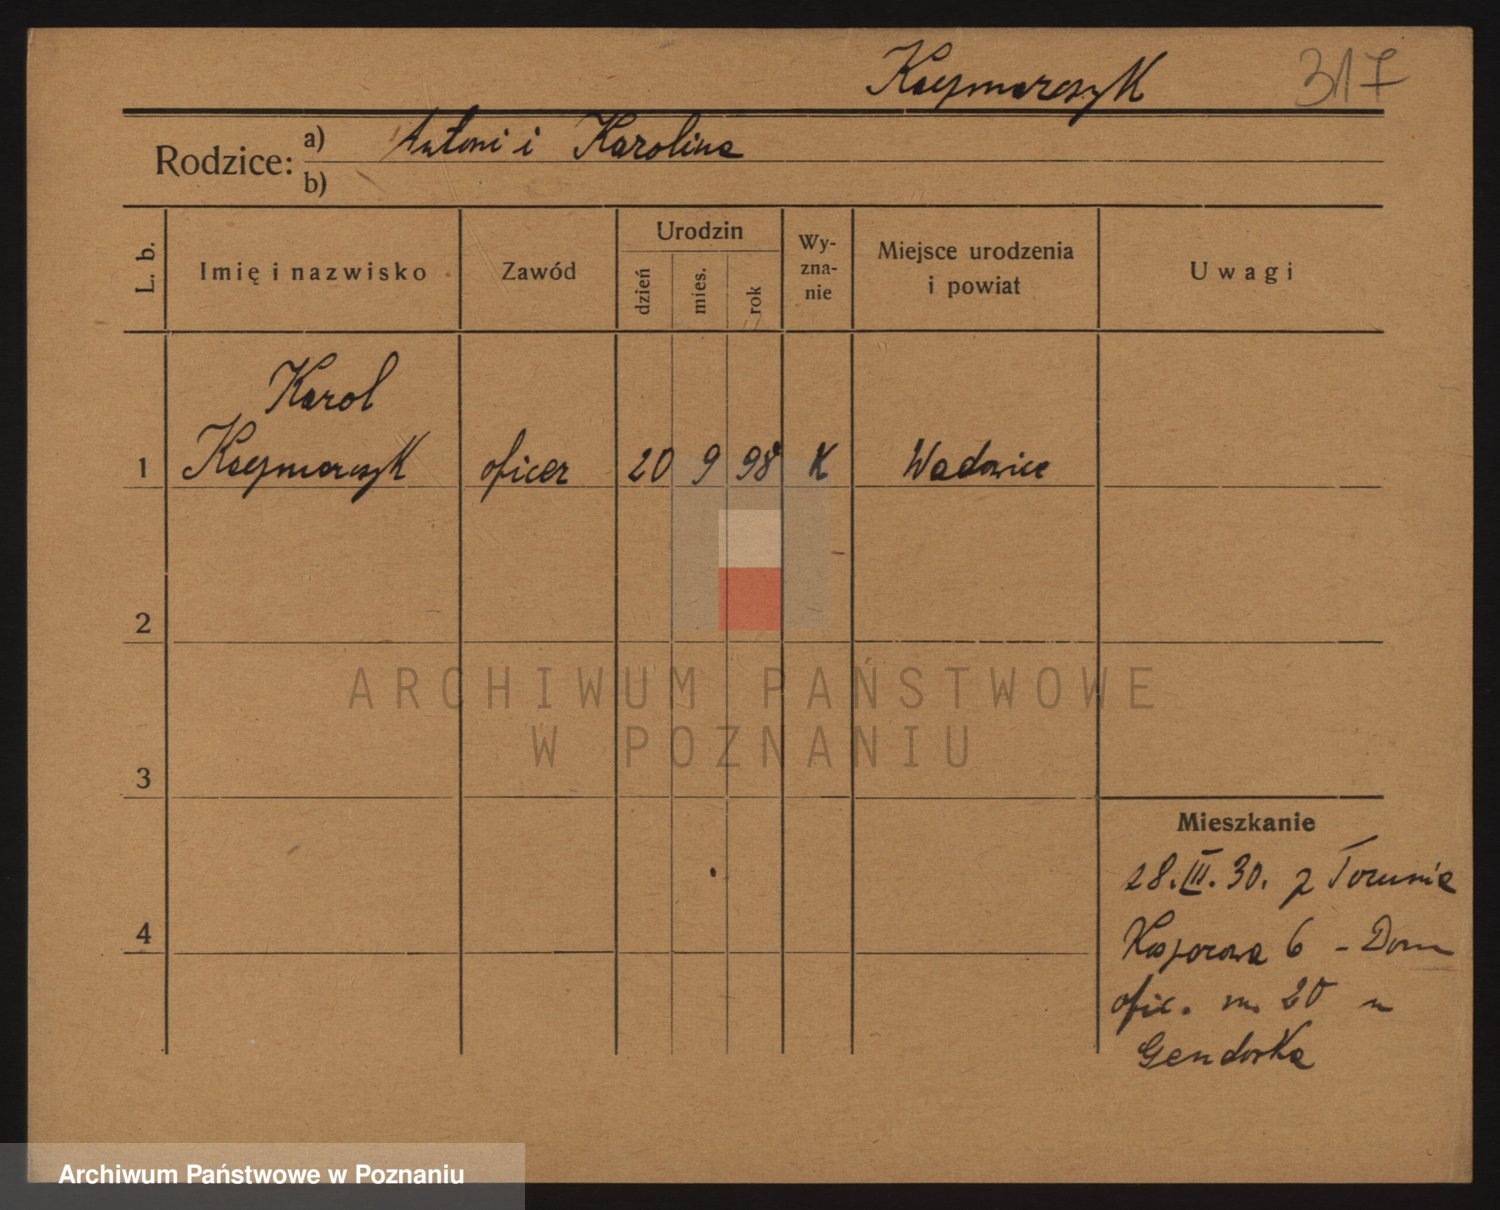 Kaczmarczyk 317
Rodzice: a) Antoni i Karolina
b)
L. b. Imię i nazwisko Zawód Urodzin dzień mies. rok Wy-zna-nie Miejsce urodzenia i powiat Uwagi
Karol
1 Kaczmarczyk oficer 20 9 98 K Wadowice
2
ARCHIWUM PAŃSTWOWE
W POZNANIU
3
Mieszkanie
28.III.30. z Torunia
4
6 - Dom
ofic. m. 20 u
Gendorka
Archiwum Państwowe w Poznaniu